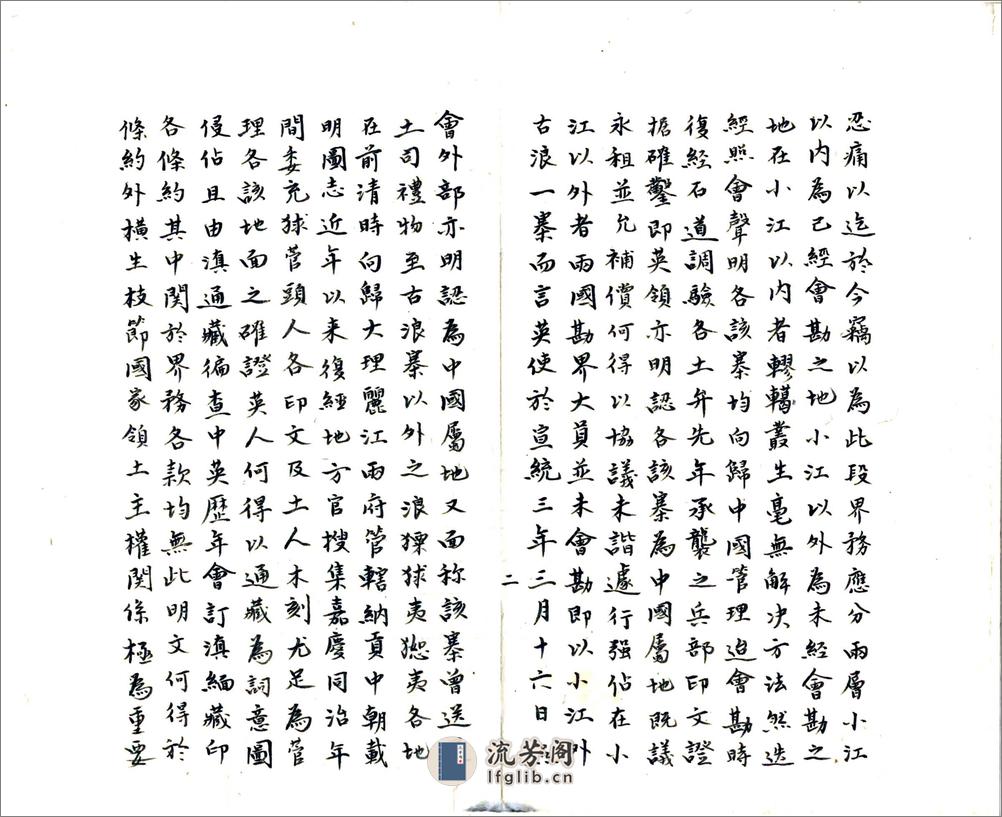 忍痛以迄於今竊以為此段界務應分兩層小江
以内為已經會勘之地小江以外為未經會勘之
地在小江以内者轇轕叢生毫無解决方法然迭
經照會聲明各該寨均向歸中國管理迨會勘時
復經石道調驗各土弁先年承襲之兵部印文證
據確鑿即英領亦明認各該寨為中國屬地既議
永租並允補償何得以協議未諧遽行强佔在小
江以外者兩國勘界大員並未會勘即以小江外
古浪一寨而言英使於宣統三年三月十六日
二
會外部亦明認為中國屬地又面称該寨曾送
土司禮物至古浪寨以外之浪猓狱夷怒夷各地
在前清時向歸大理麗江兩府管轄納貢中朝載
明圖志近年以来復經地方官搜集嘉慶同治年
間委充狱菅頭人各印文及土人木刻尤足為菅
理各該地面之確證英人何得以通藏為詞意圖
侵佔且由滇通藏徧查中英歷年會訂滇緬藏印
各條約其中関於界務各款均無此明文何得於
條約外橫生枝節國家領土主權関係極為重要
流芳阁
lfglib.cn